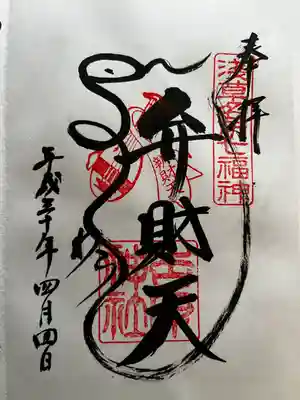 奉拝
浅草名所七福神
弁財天
平成三十年四月四日